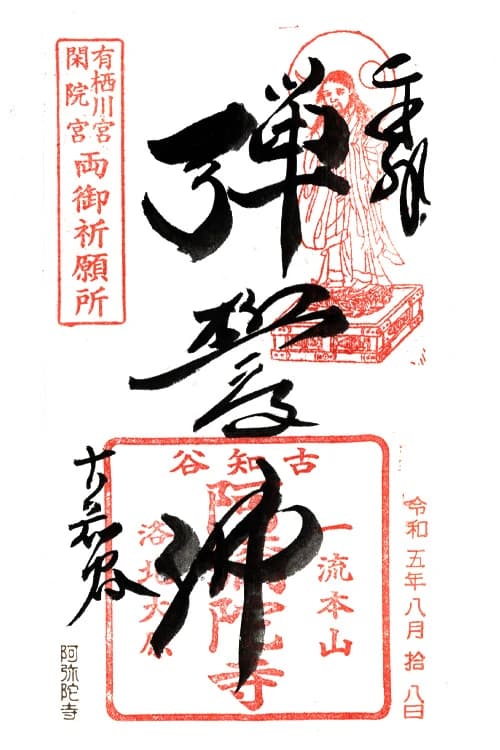 奉拝
弾誓佛
有栖川宮
閑院宮
両御祈願所
令和五年八月拾八日
古知谷
一流本山
阿弥陀寺
洛北大原
古知谷
阿弥陀寺